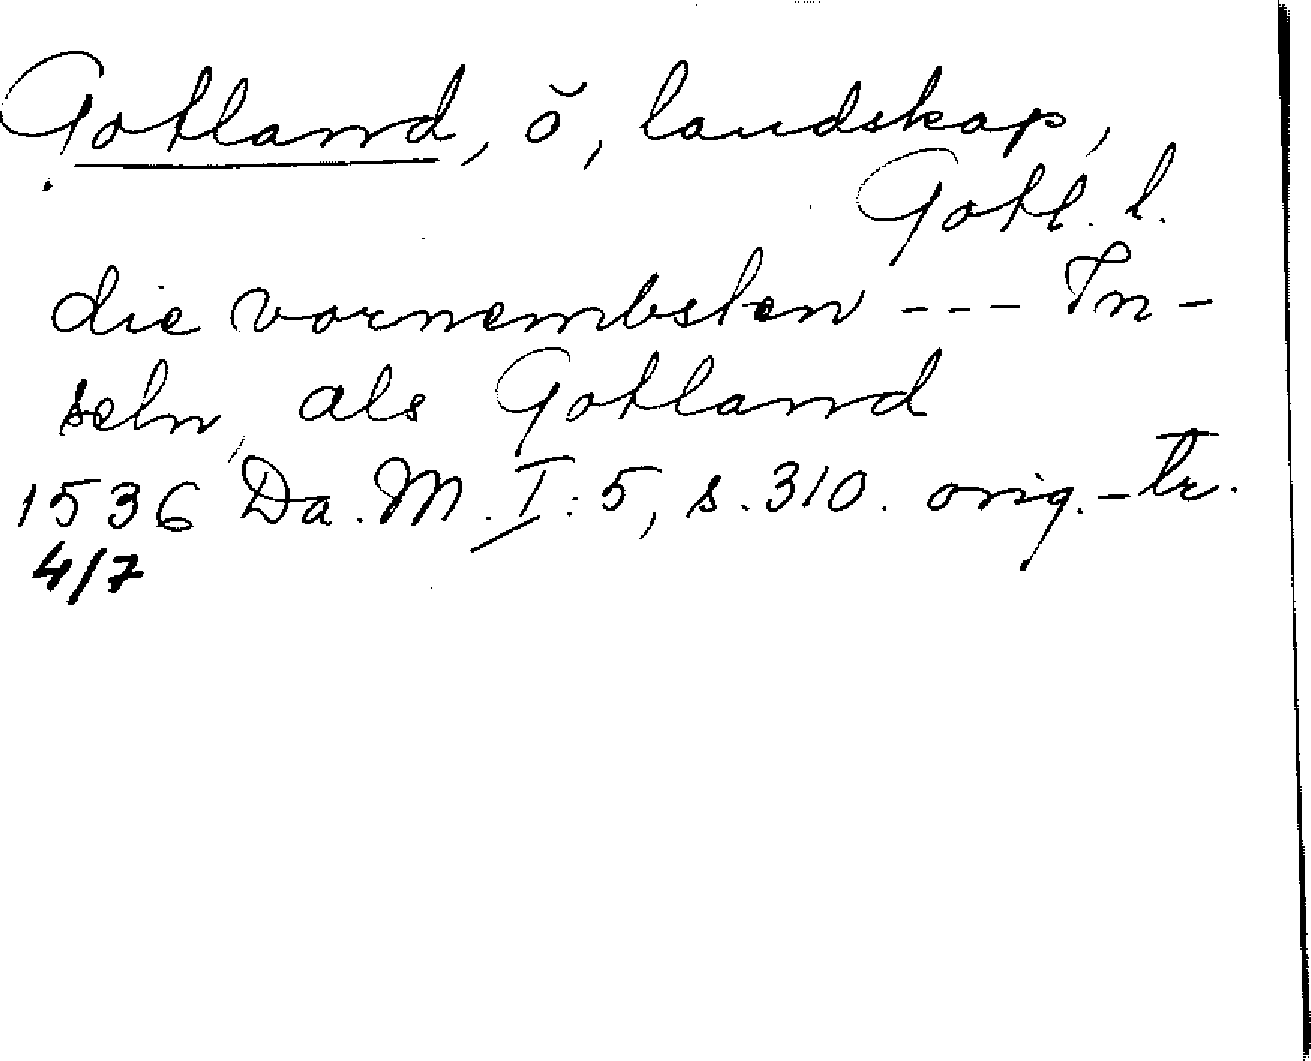 Gotland, ö, landskap,
Gotl. l.
die vornembsten --- In-
seln, als Gotland
1536 Da. M. I: 5, s. 310. orig.-tr.
4/7